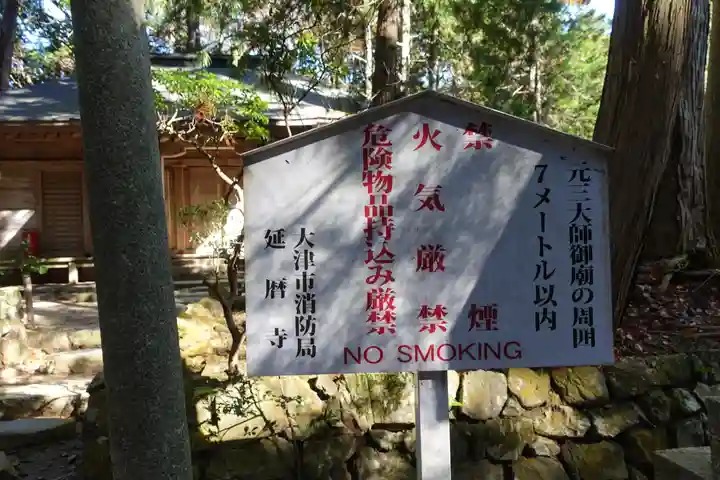 元三大師御廟の周囲
7メートル以内
禁煙
火気厳禁
危険物品持込み厳禁
大津市消防局
延暦寺
NO SMOKING